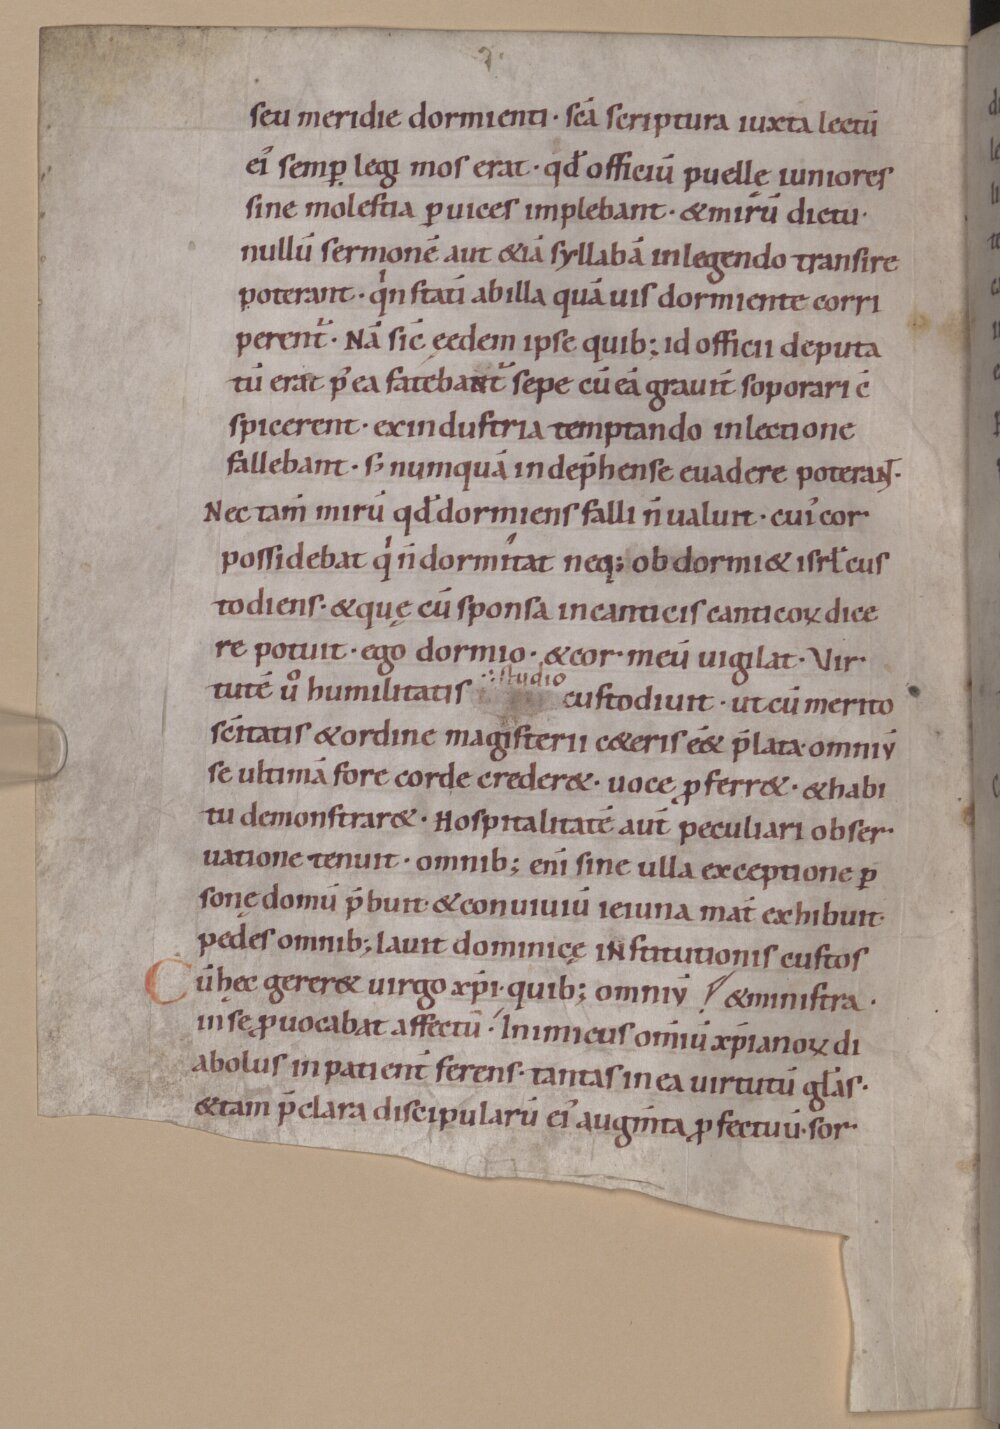 seu meridie dormienti· scā scriptura iuxta lectū
ei᾿ semp̲ legi mos erat· qđ officiū puellę iuniores
sine molestia p̲ uices implebant· & mirū dictu·
nullū sermonē aut &iā syllabā in legendo transire
poterant· qͥn statī ab illa quā uis dormiente corri
perent᷑· Nā sic̄ ęedem ipse quib; id officii deputa
tū erat p̄ ea fatebant᷑ sepe cū eā grauit̄ soporari c̄
spicerent· ex industria temptando in lectione
fallebant· s; numquā indep̄hense euadere poterant·
Nec tam̄ mirū qđ dormiens falli n̄ ualuit· cui᾿ cor·
possidebat qͥ n̄ dormitat neq; obdormi& isrł cus
todiens· & quę cū sponsa in canticis canticoꝝ dice
re potuit· ego dormio· & cor· meū uigilat· Vir·
tutē uͦ humilitatis studio custodiuit· ut cū merito
sc̄itatis & ordine magisterii c&eris eē& p̄lata· omniū
se ultimā fore corde creder&· uoce ꝓferr&· & habi
tu demonstrar&· Hospitalitatē aut̄ peculiari obser·
uatione tenuit· omnib; eni̅ sine ulla exceptione p̲
sonę domū p̄buit· & conuiuiū ieiuna mat̄ exhibuit·
pedes omnib; lauit dominicę institutionis custos
Cū hęc gerer& uirgo xp̄i· quib; omniū & ministra·
in se ꝓuocabat affectū· Inimicus om̄iū xp̄ianoꝝ di
abolus inpatient̄ ferens· tantas in ea uirtutū gl̄as·
& tam p̄clara discipularū ei᾿ augm̄ta ꝓfectuū· sor·